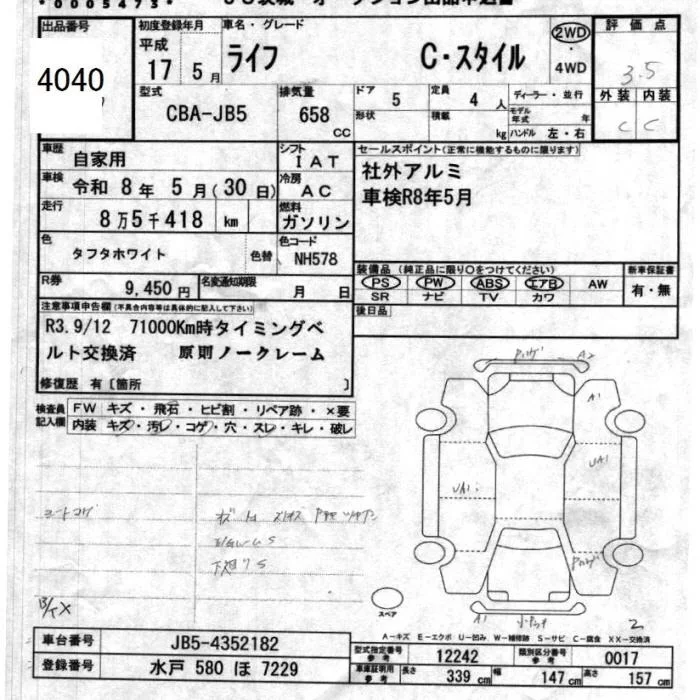 *0005473*
出品番号 初度登録年月 車名・グレード 評価点
4040 平成 17 5月 ライフ C・スタイル 2WD・4WD 3.5
型式 CBA-JB5 排気量 658 CC ドア 5 定員 4人 ディーラー・並行 外装 内装
形状 積載 kg モデル年式 年 ハンドル 左・右 C C
車歴 自家用 シフト IAT セールスポイント(正常に機能するものに限ります)
車検 令和 8年 5月(30日) 冷房 AC 社外アルミ
走行 8万5千418 km 燃料 ガソリン 車検R8年5月
色 タフタホワイト 色替 色コード NH578
R券 9,450円 名変通知期限 月 日
装備品 (純正品に限り○をつけてください) 新車保証書
PS PW ABS エアB AW 有・無
SR ナビ TV カワ
後日品
注意事項申告欄(不具合内容等は具体的に記入して下さい)
R3.9/12 71000Km時タイミングベ
ルト交換済 原則ノークレーム
修復歴 有〔箇所 〕
検査員記入欄 FW キズ・飛石・ヒビ割・リペア跡・×要
内装 キズ・汚レ・コゲ・穴・スレ・キレ・破レ
A2
A1
UA1
UA1
シートコゲ
下廻りS
A1
2
スペア
A-キズ E-エクボ U-凹み W-補修跡 S-サビ C-腐食 XX-交換済
車台番号 JB5-4352182 型式指定番号 参考 12242 類別区分番号 参考 0017
登録番号 水戸 580 ほ 7229 車庫証明用 参考 長さ 339cm 幅 147cm 高さ 157cm